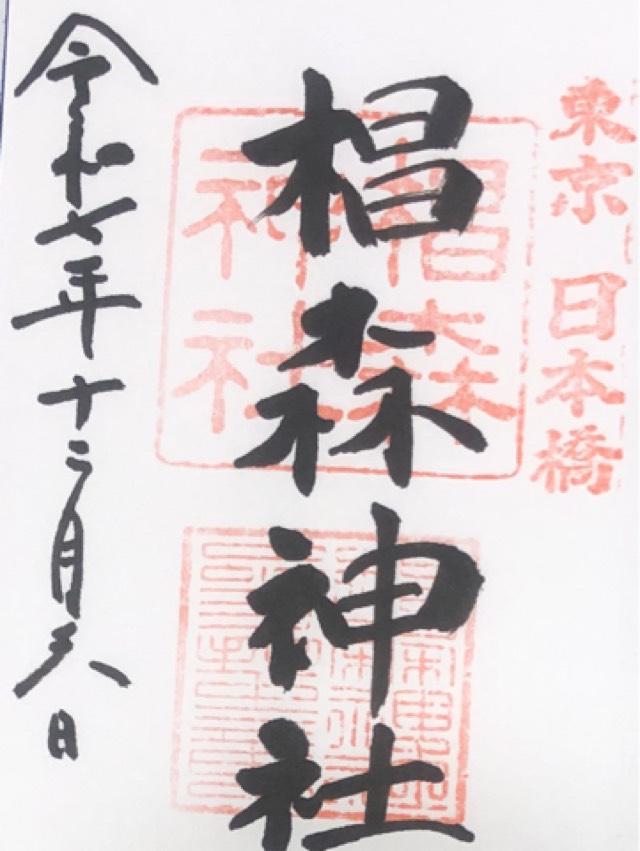 東京 日本橋
椙森神社
椙森
神社
令和七年十二月 日